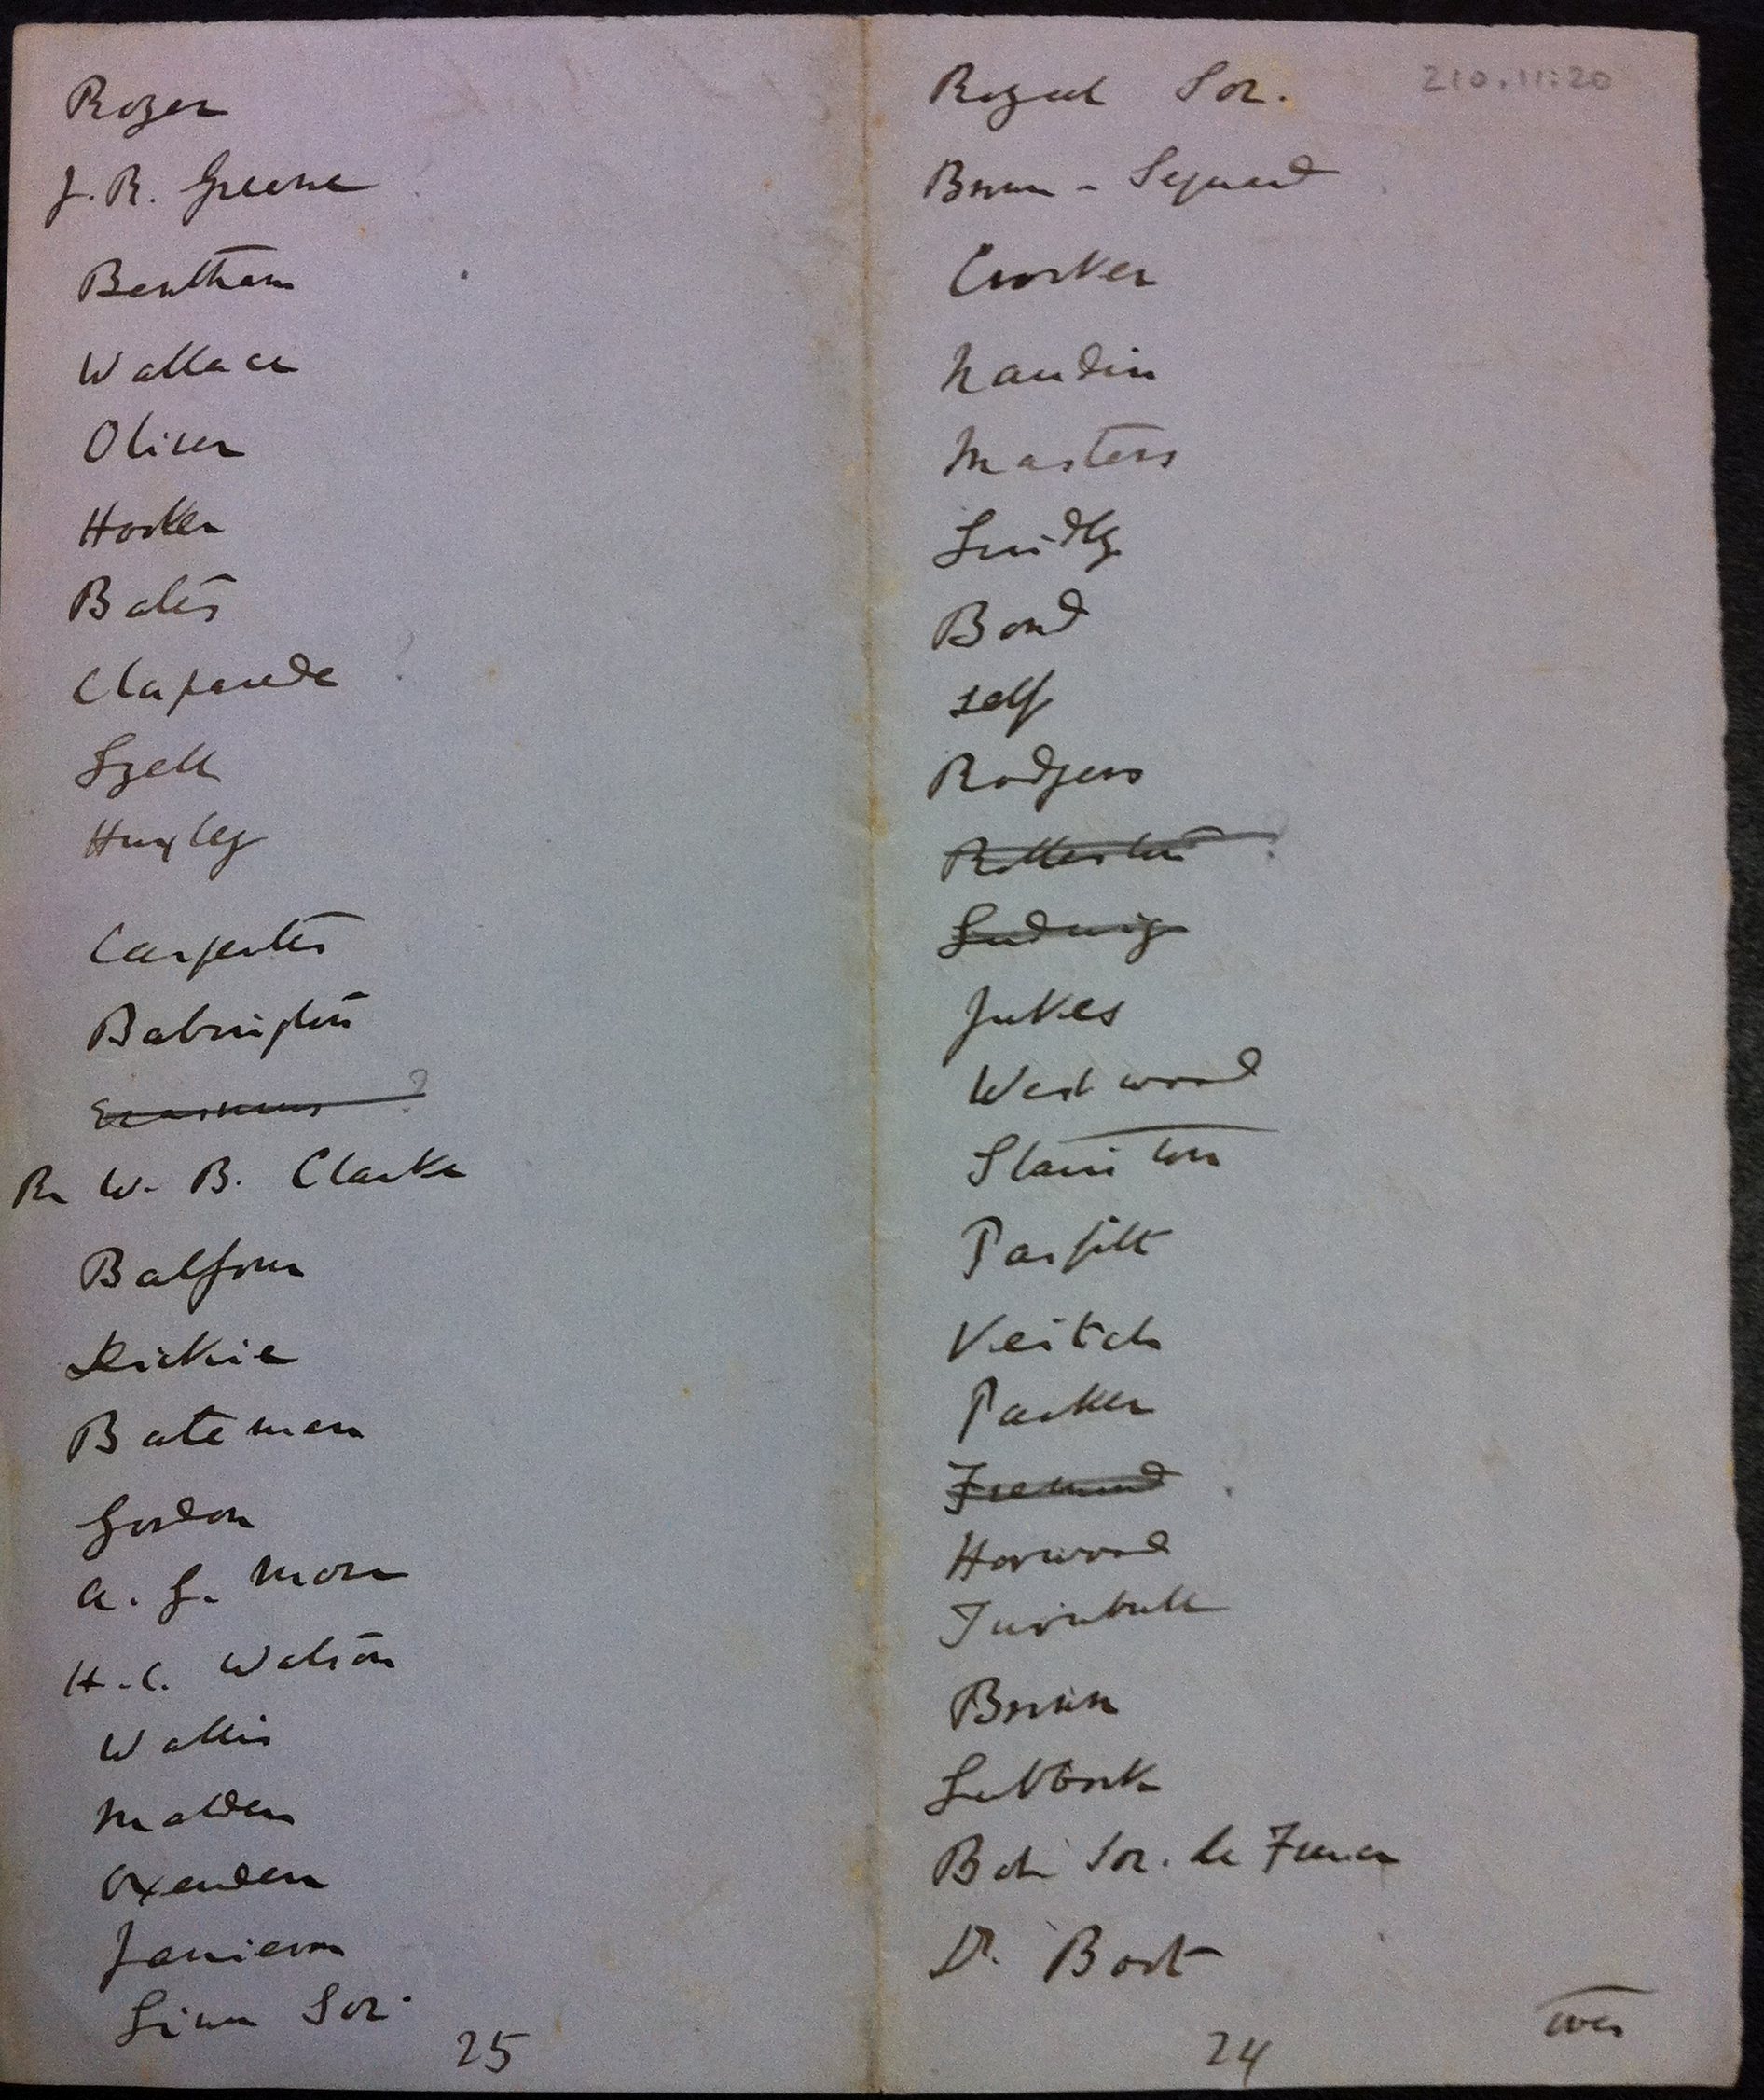 Royer
J. R. Greene
Bentham
Wallace
Oliver
Hooker
Bates
Claparede ?
Lyell
Huxley
Carpenter
Babington
Erasmus ?
Rev W. B. Clarke
Balfour
Dickie
Bateman
Gordon
A. G. More
H. C. Watson
Wallis
Malden
Oxenden
Jamieson
Linn Soc.
25
Royal Soc.
210.11:20
Brown-Sequard
Crocker
Naudin
Masters
Lindley
Bond
self
Rodgers
Rolleston ?
Ludwig
Jukes
Westwood
Stainton
Parfitt
Veitch
Parker
Freund
Horwood
Turnbull
Lubbock
Bot. Soc. de France
Dr.
24
over